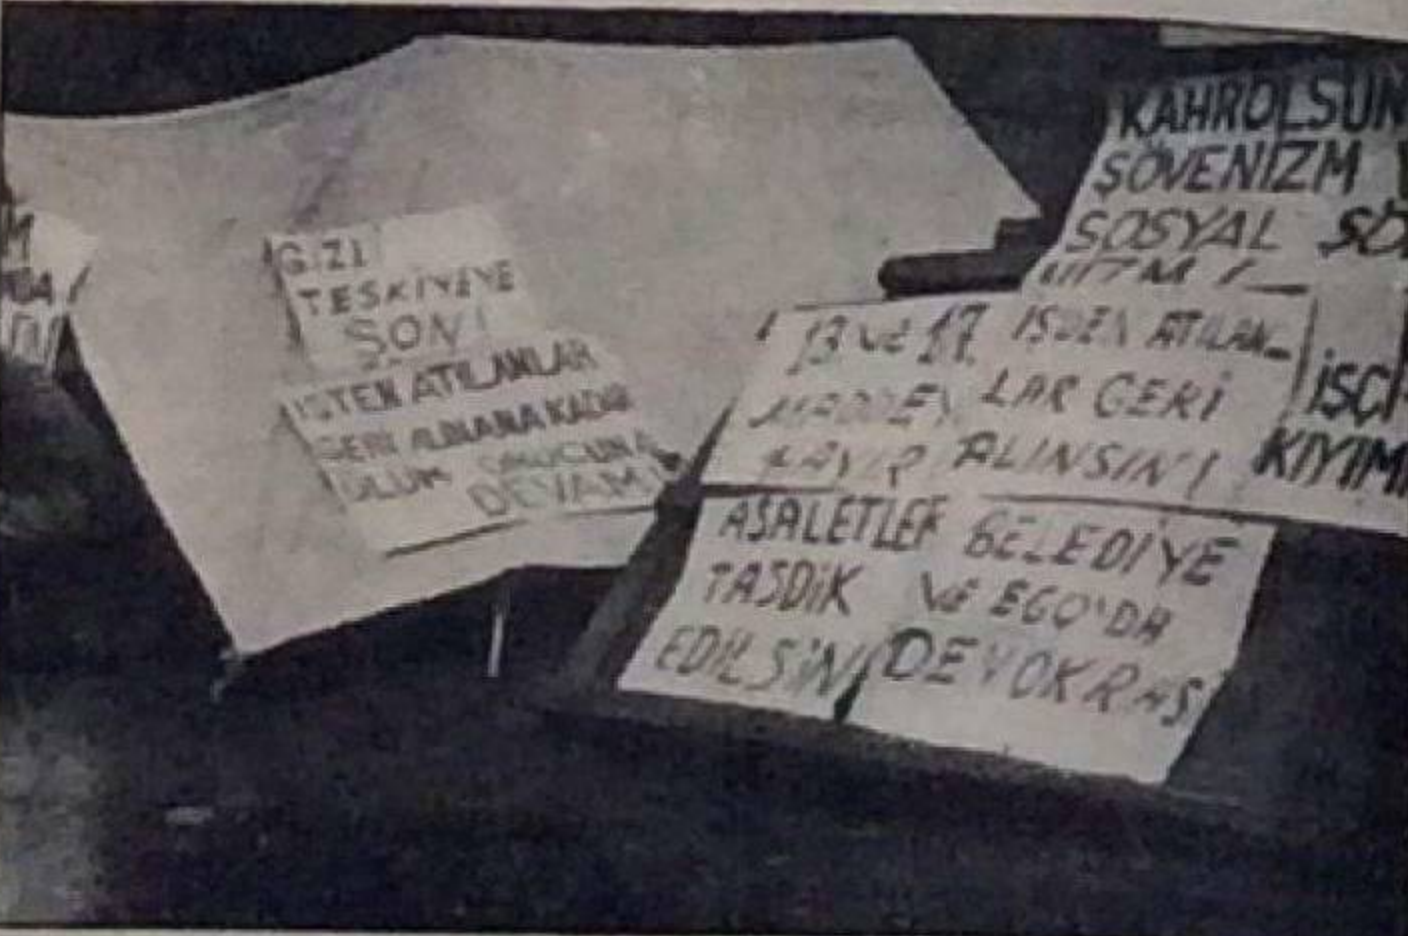 GİZLİ
TESKİYEYE
SON!
İŞTEN ATILANLAR
GERİ ALINANA KADAR
ÖLÜM ORUCUNA
DEVAM!
KAHROLSUN
ŞÖVENİZM
SOSYAL ŞÖ
13 ve 17.
MADDEYE
HAYIR
İŞDEN ATILAN-
LAR GERİ
ALINSIN!
İŞÇİ
KIYIMI
ASALETLER
TASDİK
EDİLSİN
BELEDİYE
VE EGO'DA
DEMOKRASİ